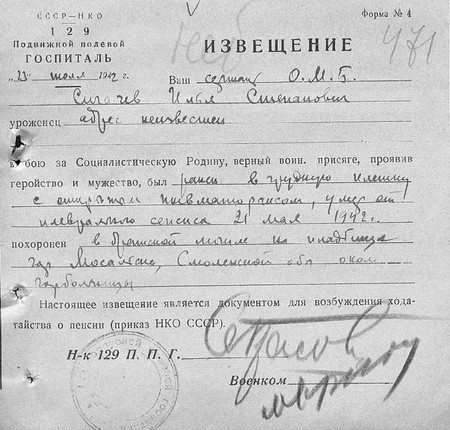 СССР—НКО
Форма № 4
129
Подвижной полевой
ГОСПИТАЛЬ
ИЗВЕЩЕНИЕ
471
1942 г.
Ваш сержант О.М.Б.
Сигачев Илья Степанович
уроженец адрес неизвестен
в бою за Социалистическую Родину, верный воин. присяге, проявив
геройство и мужество, был ранен в грудную клетку
с открытым пневматораксом, умер от
сепсиса 21 мая 1942 г.
похоронен в братской могиле на кладбище
гор Мосальска, Смоленской обл около
горбольницы
Настоящее извещение является документом для возбуждения хода-
тайства о пенсии (приказ НКО СССР).
Н-к 129 П. П. Г.
Военком